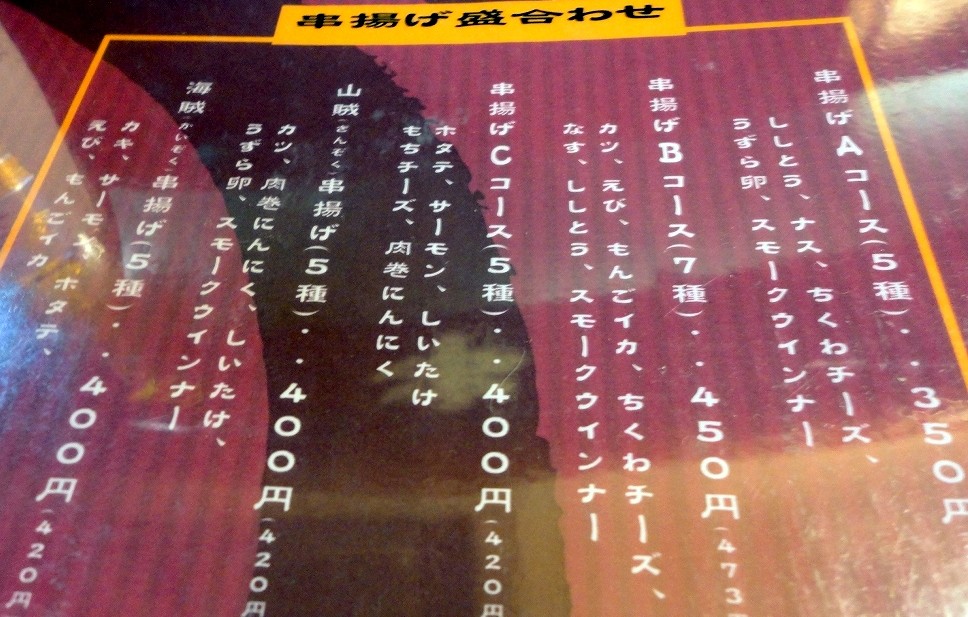 串揚げ盛合わせ
串揚げAコース(5種)・・350円
ししとう、ナス、ちくわチーズ、
うずら卵、スモークウインナー
串揚げBコース(7種)・・450円(473
カツ、えび、もんごイカ、ちくわチーズ、
なす、ししとう、スモークウインナー
串揚げCコース(5種)・・400円(420円
ホタテ、サーモン、しいたけ
もちチーズ、肉巻にんにく
山賊(さんぞく)串揚げ(5種)・・400円(420円
カツ、肉巻にんにく、しいたけ、
うずら卵、スモークウインナー
海賊(かいぞく)串揚げ(5種)・・400円(420円
カキ、サーモン、ホタテ、
えび、もんごイカ